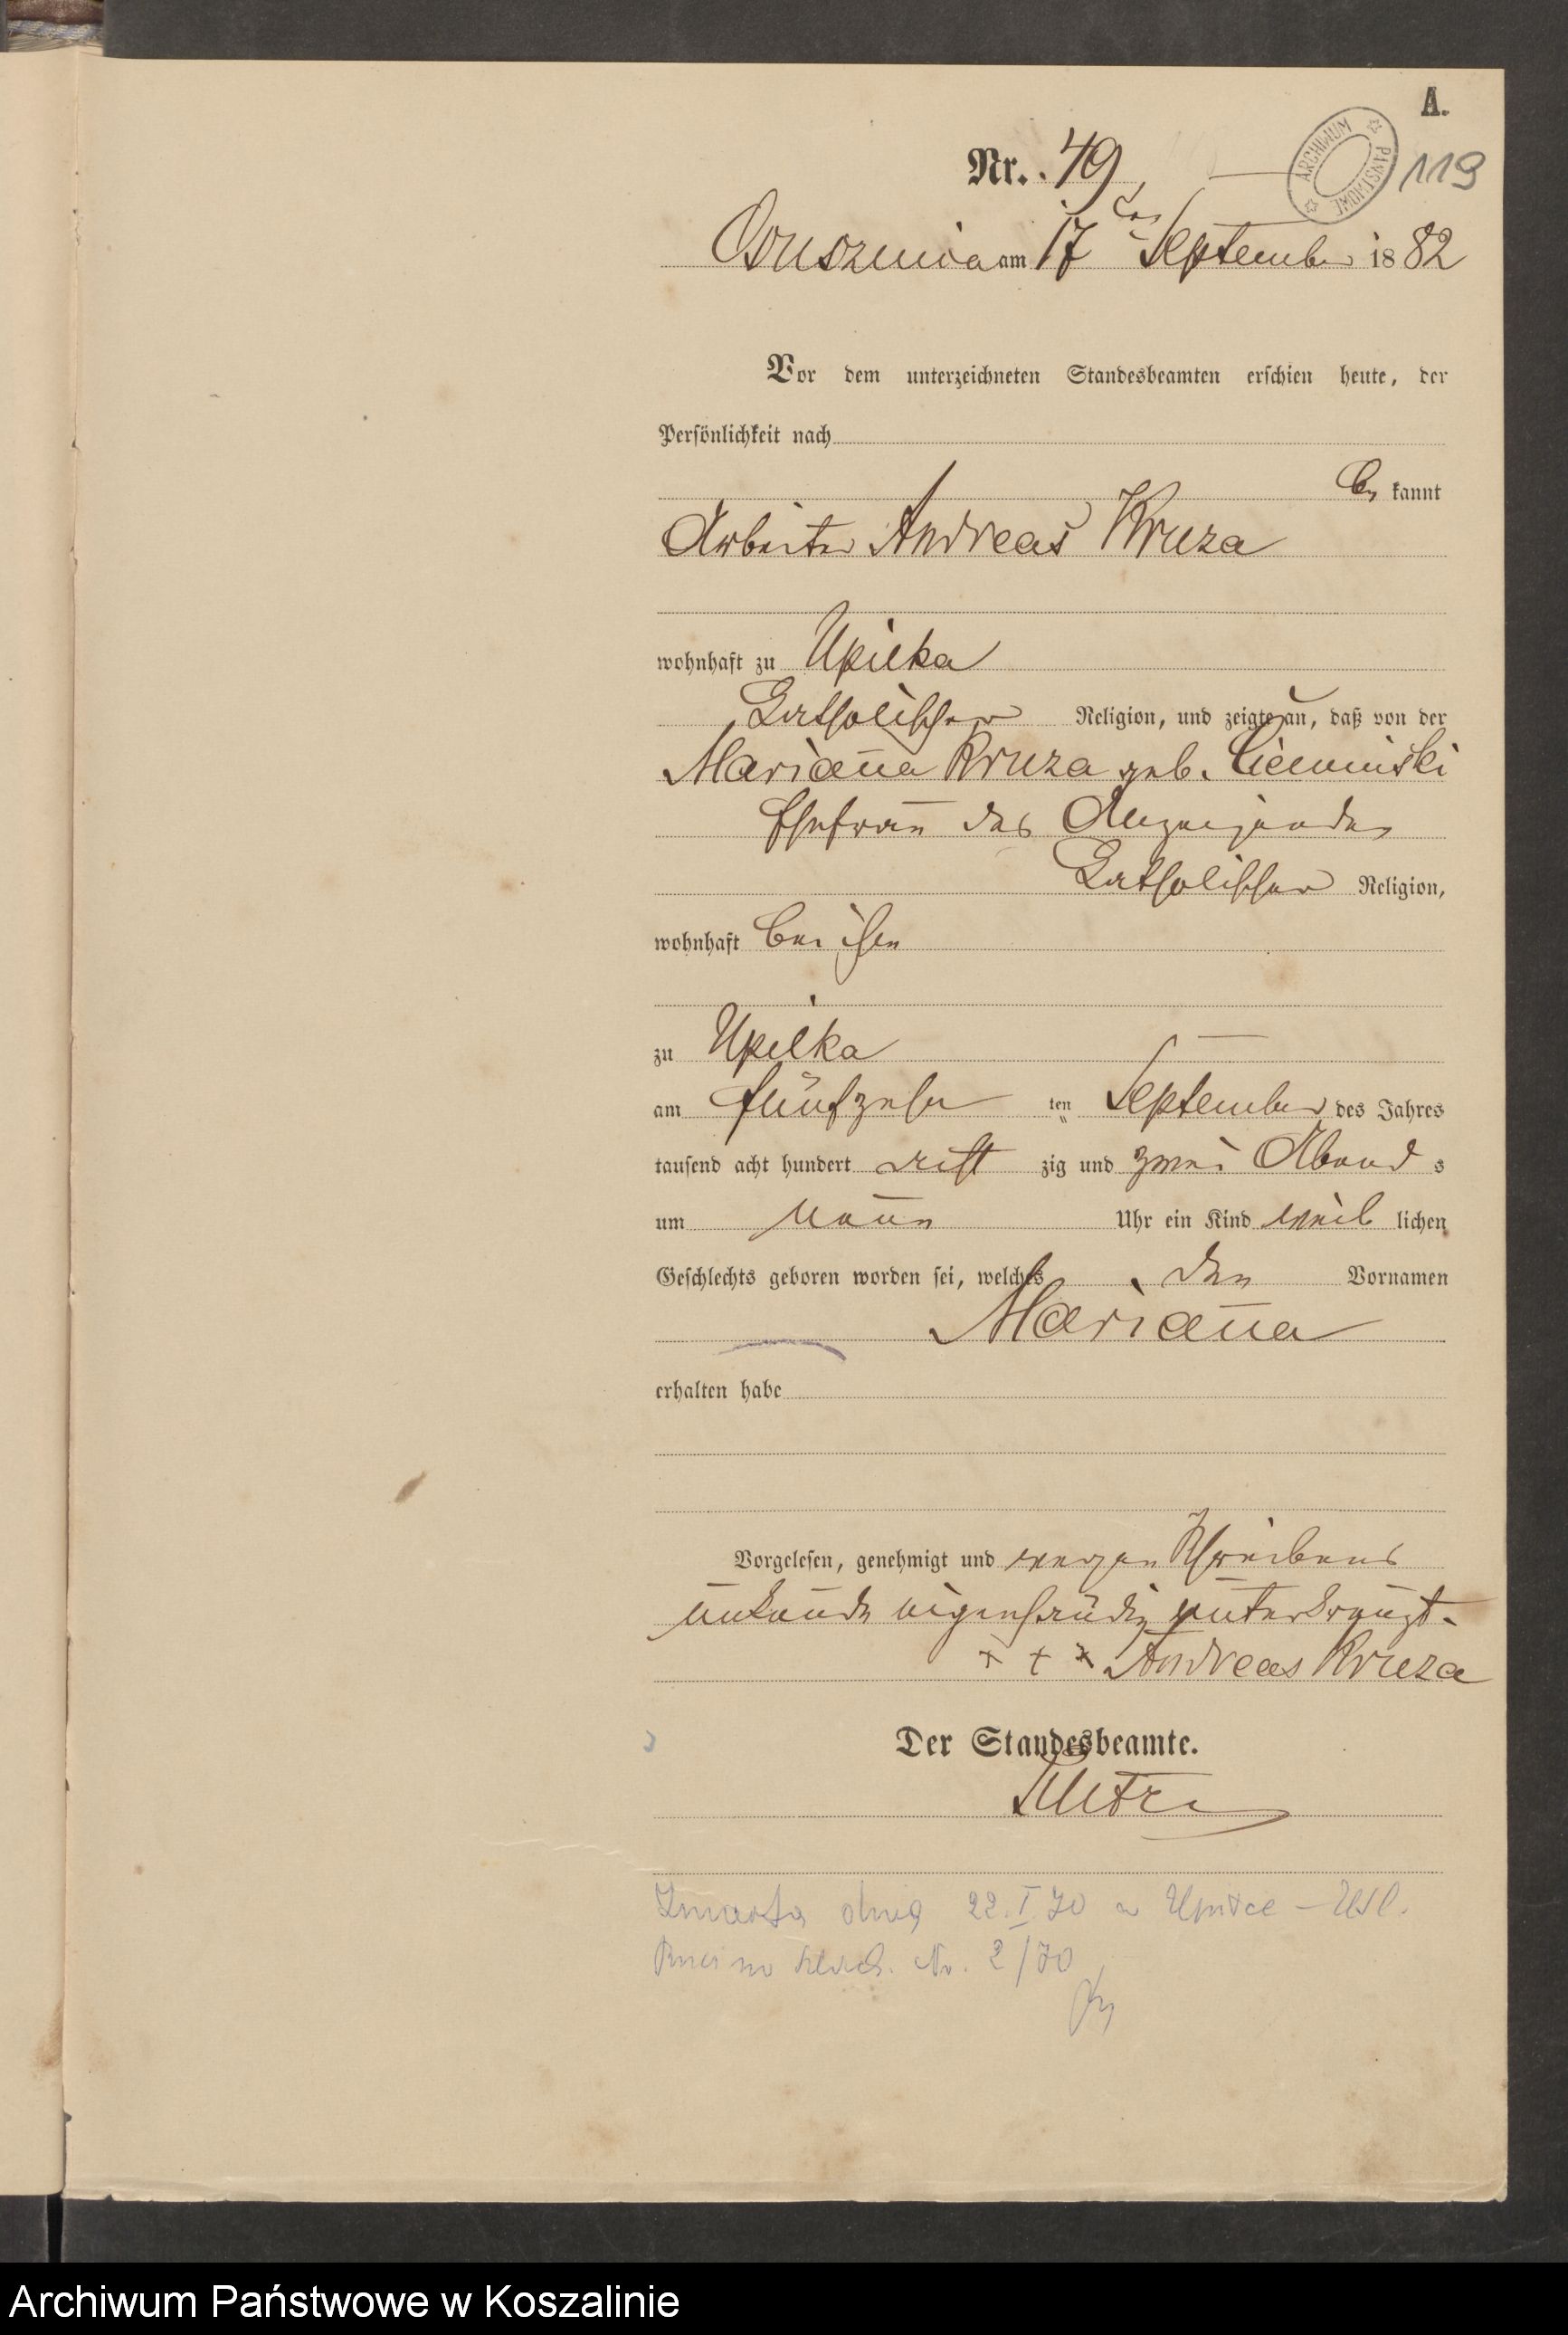 A.
Nr. 49,
ARCHIWUM PAŃSTWOWE
119
Osusznica am 17ten September 1882
Vor dem unterzeichneten Standesbeamten erschien heute, der
Persönlichkeit nach
bekannt
Arbeiter Andreas Kruza
wohnhaft zu Upilka
katholischer Religion, und zeigte an, daß von der
Marian̄a Kruza geb. Ciemiński
Ehefrau des Anzeigenden
katholischer Religion,
wohnhaft bei ihm
zu Upilka
am fünfzehn ten September des Jahres
tausend acht hundert acht zig und zwei Abend s
um neun Uhr ein Kind weib lichen
Geschlechts geboren worden sei, welches den Vornamen
Marian̄a
erhalten habe
Vorgelesen, genehmigt und wegen Schreibens
unkunde eigenhändig unterkreuzt.
+ + + Andreas Kruza
Der Standesbeamte.
Zmarła dnia 22.I.70 w Upiłce - USC.
Nr. 2/70
Archiwum Państwowe w Koszalinie